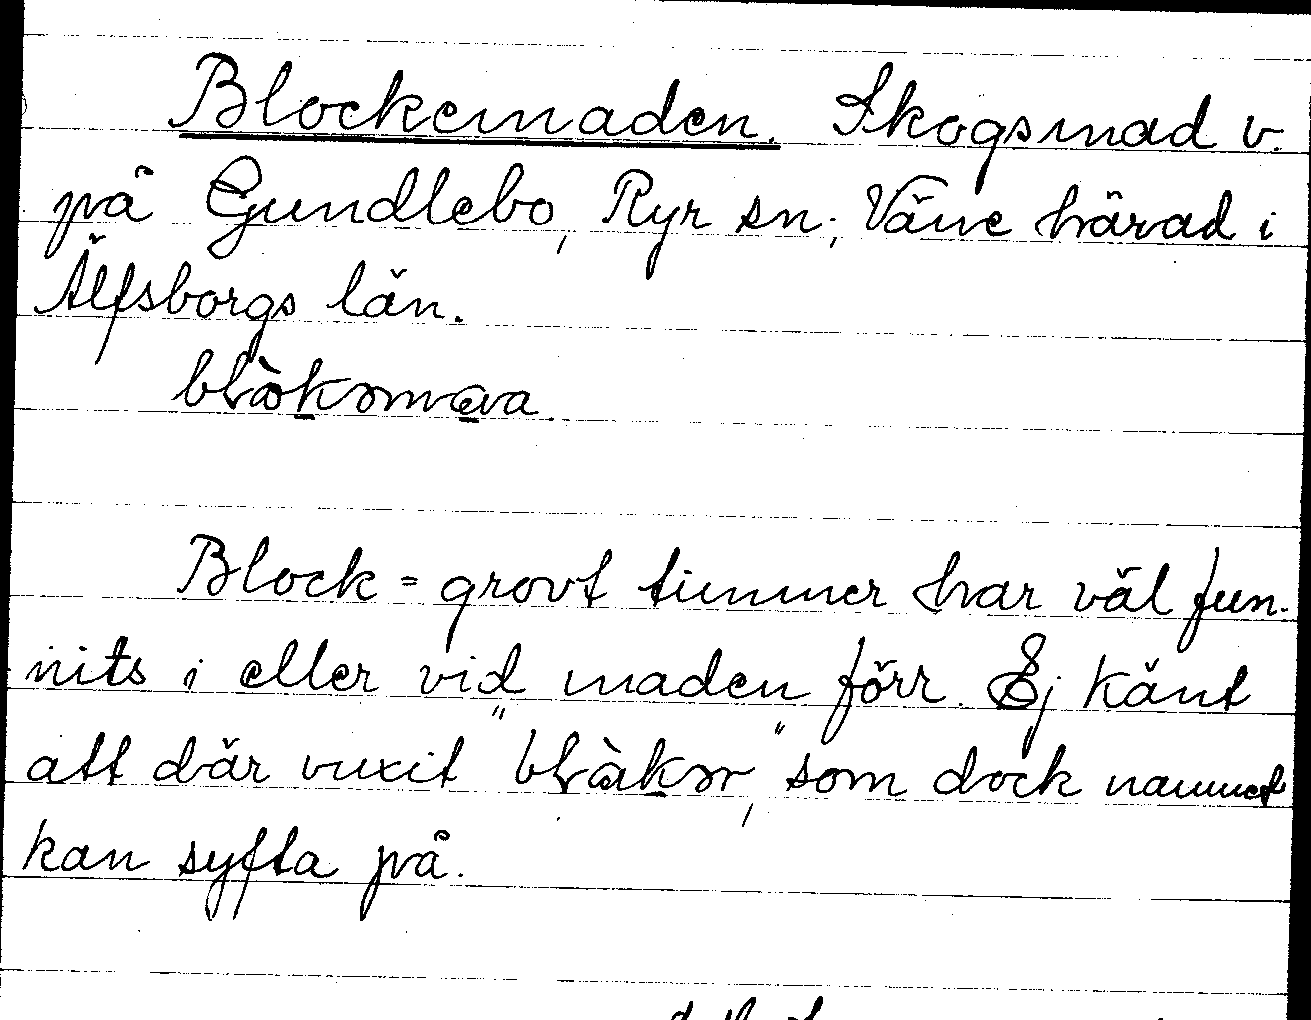 Blockemaden. Skogsmad v.
på Gundlebo, Ryr sn; Väne härad i
Älfsborgs län.
Block = grovt timmer har väl fun-
nits i eller vid maden förr. Ej känt
att där vuxit som dock namnet
kan syfta på.